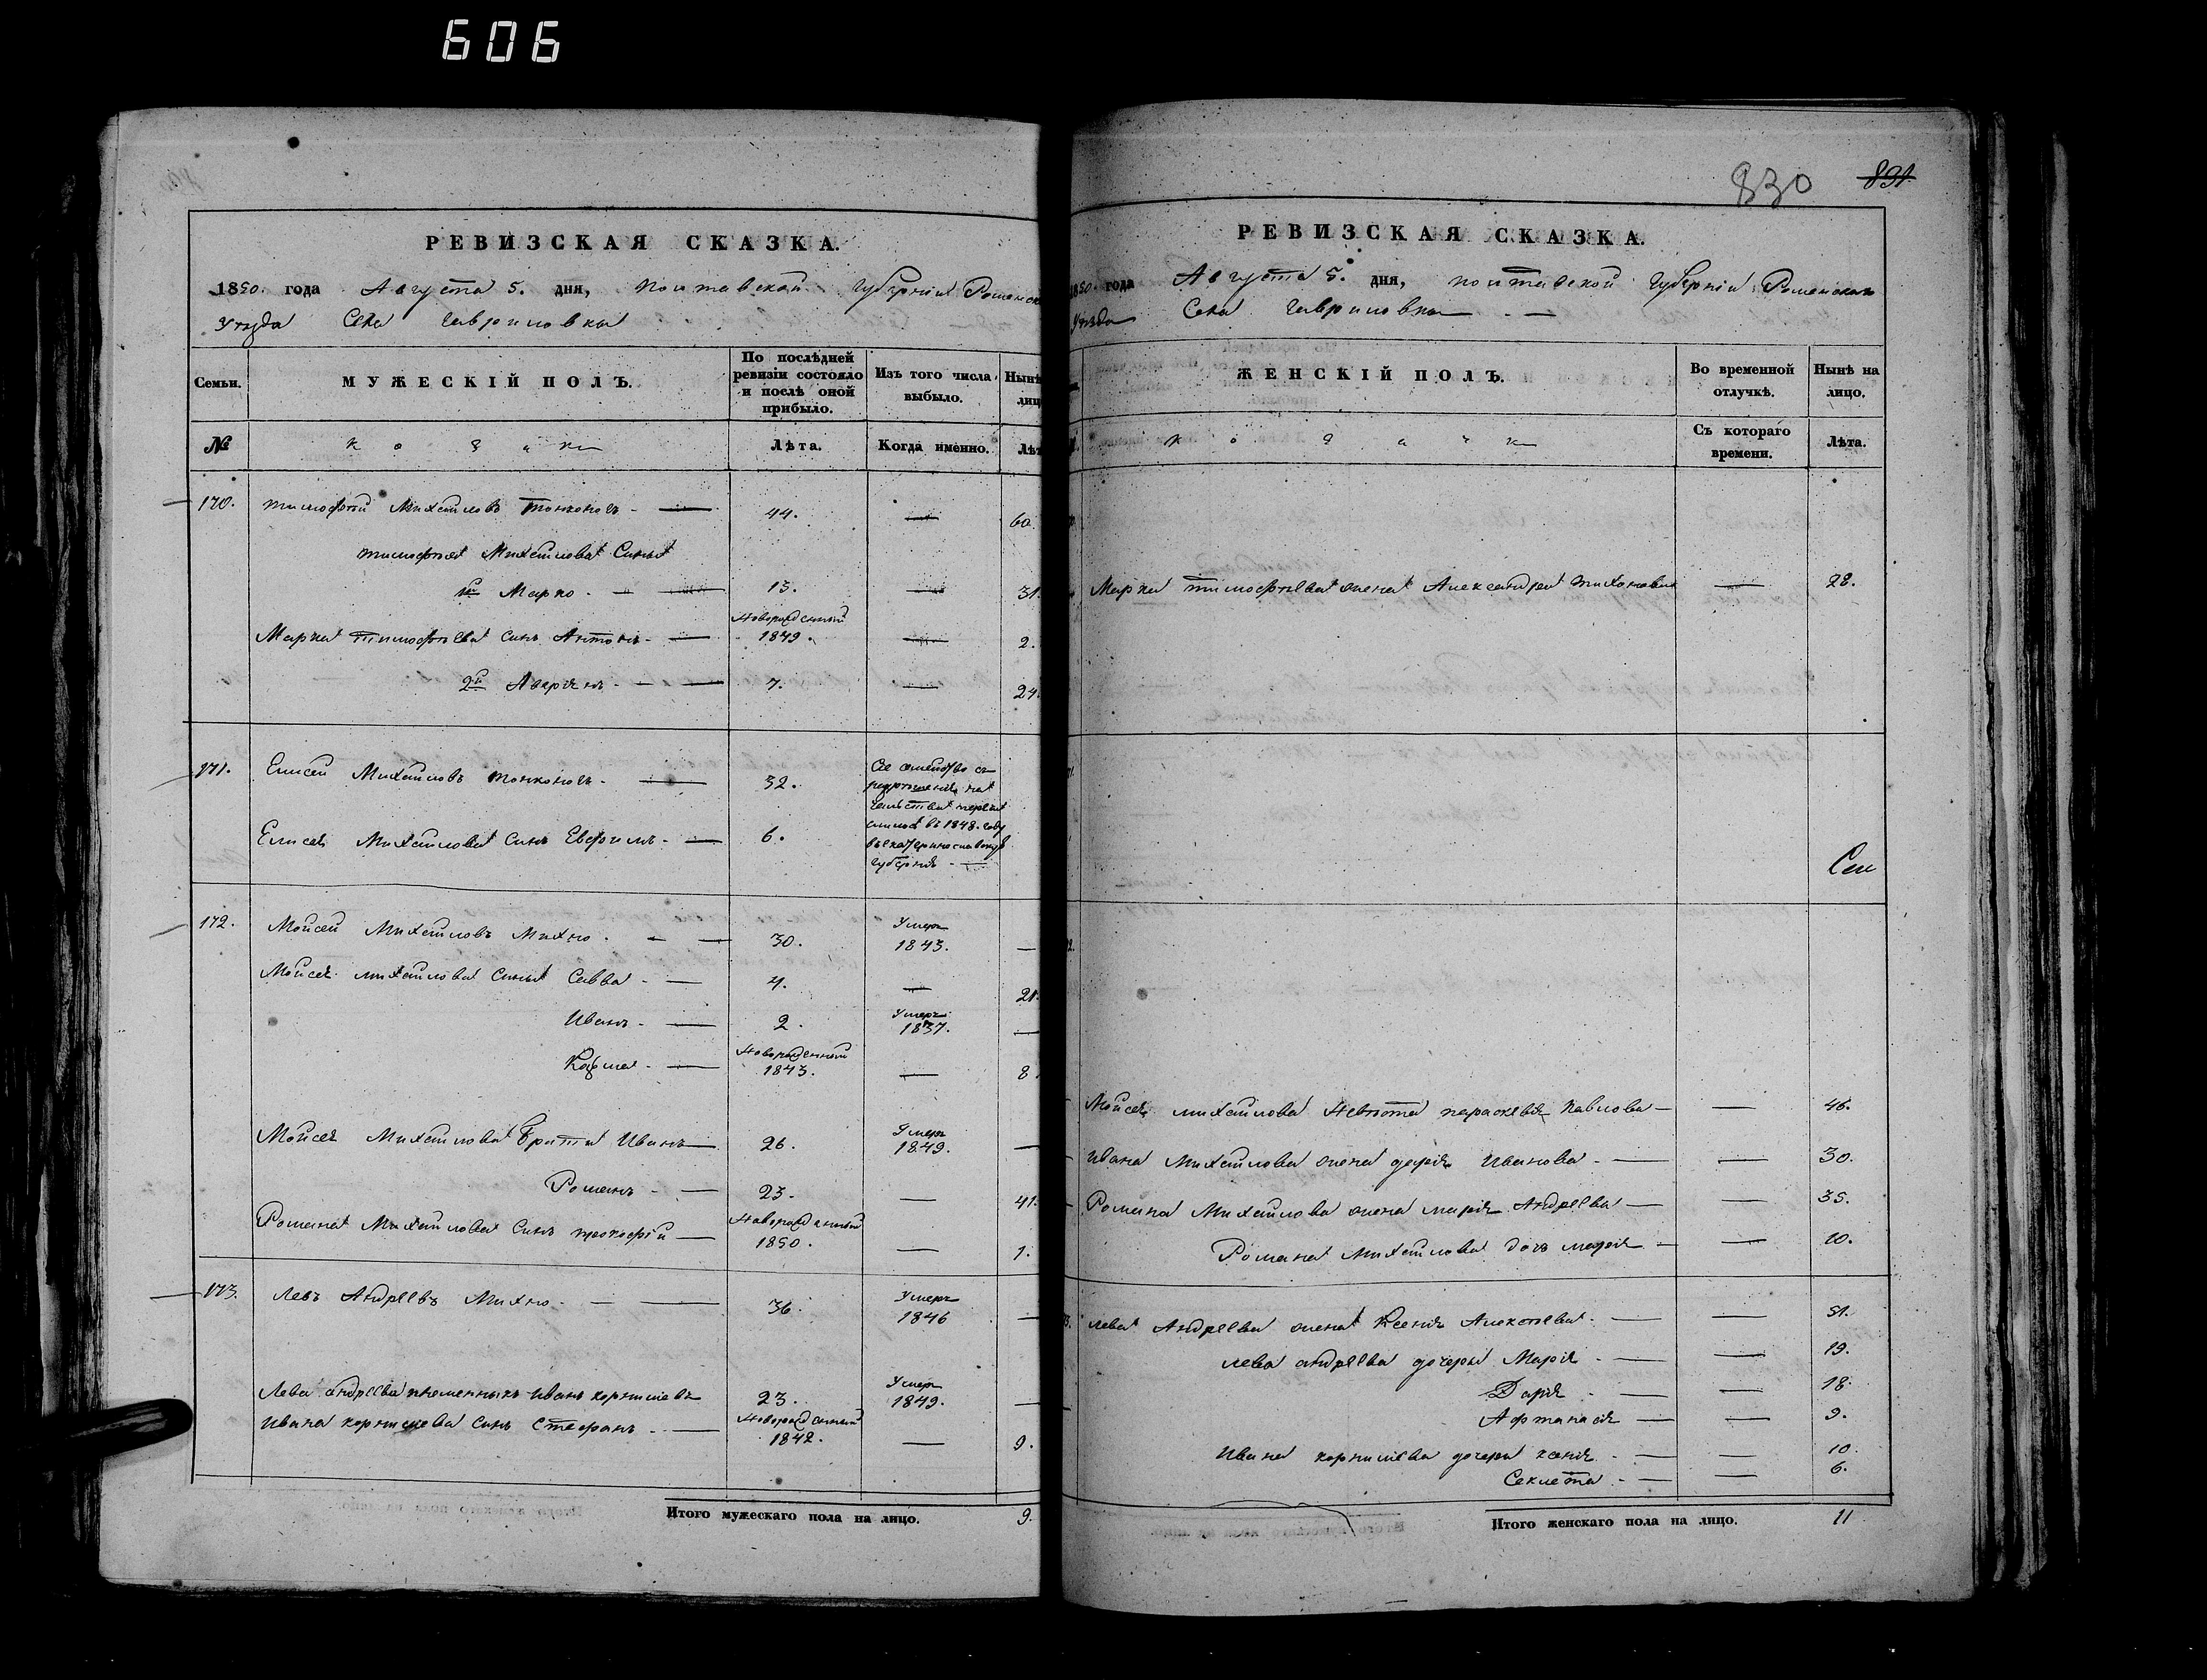 606
РЕВИЗСКАЯ СКАЗКА.
1850. года Августа 5. дня, Полтавской Губерніи Роменск
Уѣзда Села Гавриловки
Семьи.
МУЖЕСКІЙ ПОЛЪ.
По послѣдней ревизіи состояло и послѣ оной прибыло.
Изъ того числа выбыло.
Нынѣ лиц
№
Козаки
Лѣта.
Когда именно.
Лѣт
170. Тимофѣй Михайловъ Тонконогъ - — 44. — 60.
Тимофѣя Михайлова Сыны
1й Марко - — 13. — 31.
Марка Тимофѣева Сынъ Антонъ - — Новорожденный 1849. — 2.
2й Аверіянъ - — 7. — 24.
171. Елисей Михайловъ Тонконогъ - — 32.
Елисея Михайлова Сынъ Евфимъ - — 6.
Сіе семейство съ
разрѣшенія на
чальства пересе
лилось въ 1848. году
въ Екатеринославскую
Губернію - —
172. Мойсей Михайловъ Михно - — 30. Умеръ 1843. —
Мойсея Михайлова Сыны Савва - — 4. — 21.
Иванъ - — 2. Умеръ 1837. —
Козма - — Новорожденный 1843. — 8.
Мойсея Михайлова Братья Иванъ — 26. Умеръ 1849. —
Романъ - — 23. — 41.
Романа Михайлова Сынъ Прокофій — Новорожденный 1850. — 1.
173. Левъ Андреевъ Михно - — 36. Умеръ 1846 —
Лева Андреева племенникъ Иванъ Корниліевъ 23. Умеръ 1849. —
Ивана Корниліева Сынъ Стефанъ - — Новорожденный 1842. — 9.
Итого мужескаго пола на лицо. 9.
830 891.
РЕВИЗСКАЯ СКАЗКА.
1850. года Августа 5. дня, Полтавской Губерніи Роменскаго
Уѣзда Села Гавриловки - —
ЖЕНСКІЙ ПОЛЪ.
Во временной отлучкѣ.
Нынѣ на лицо.
Козачки
Съ котораго времени.
Лѣта.
Марка Тимофѣева жена Александра Тихонова — 28.
Мойсея Михайлова Невѣста Параскевія Павлова — — 46.
Ивана Михайлова жена Иванова - — — 30.
Романа Михайлова жена Марія Андреева — — 35.
Романа Михайлова дочь Марія — — 10.
Лева Андреева жена Ксенія Алексѣева - — — 51.
Лева Андреева дочери Марія - — — 19.
Дарія - — — 18.
Афтанасія — — 9.
Ивана Корниліева дочери Ксенія - — — 10.
Секлета - — — 6.
Итого женскаго пола на лицо. 11